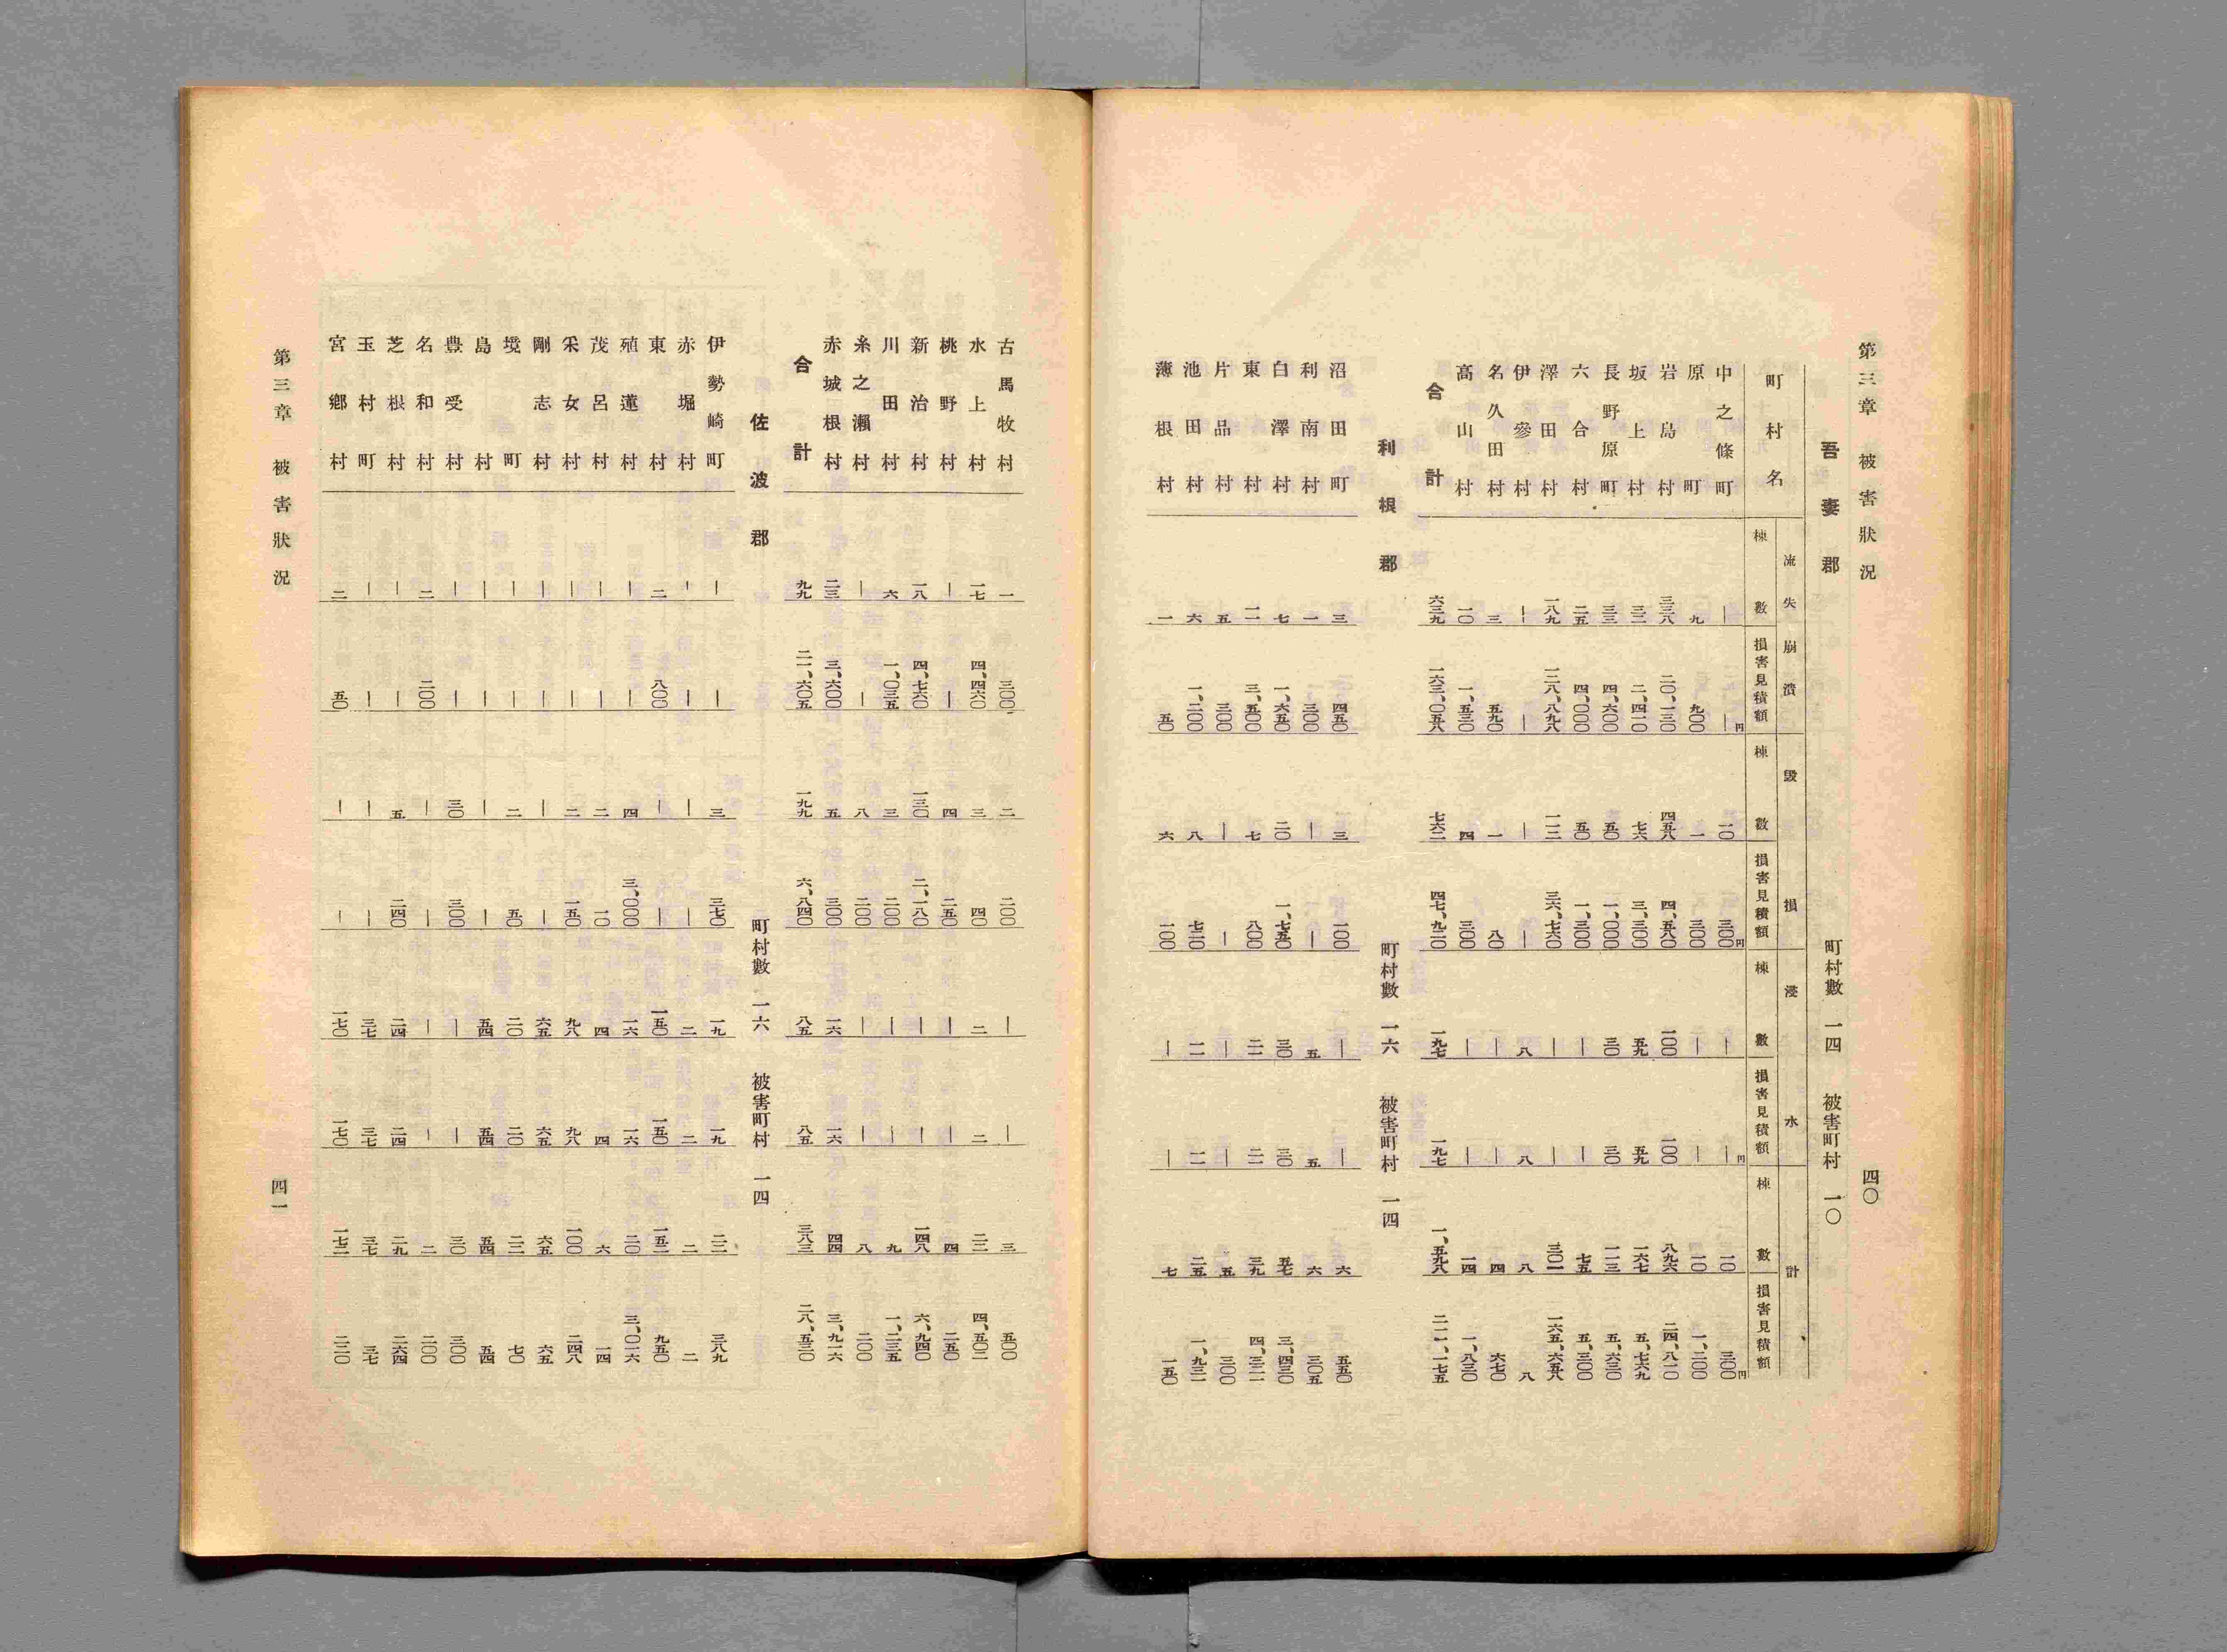 第三章 被害狀況 四〇
吾妻郡 町村數 一四 被害町村 一〇
流失崩潰 毀損 浸水 計
町村名 棟數 損害見積額 棟數 損害見積額 棟數 損害見積額 棟數 損害見積額
中之條町 — —円 一〇 三〇〇円 — —円 一〇 三〇〇円
原町 九 九〇〇 一 三〇〇 — — 一〇 一、二〇〇
岩島村 三三八 二〇、一三〇 四五八 四、五八〇 一〇〇 一〇〇 八九六 二四、八一〇
坂上村 三二 二、四一〇 七六 三、三〇〇 五九 五九 一六七 五、七六九
長野原町 三三 四、六〇〇 五〇 一、〇〇〇 三〇 三〇 一一三 五、六三〇
六合村 二五 四、〇〇〇 五〇 一、三〇〇 — — 七五 五、三〇〇
澤田村 一八九 一二八、八九八 一一二 三六、七六〇 — — 三〇一 一六五、六五八
伊參村 — — — — 八 八 八 八
名久田村 三 五九〇 一 八〇 — — 四 六七〇
高山村 一〇 一、五三〇 四 三〇〇 — — 一四 一、八三〇
合計 六三九 一六三、〇五八 七六二 四七、九二〇 一九七 一九七 一、五九八 二一一、一七五
利根郡 町村數 一六 被害町村 一四
沼田町 三 四五〇 三 一〇〇 — — 六 五五〇
利南村 一 三〇〇 — — 五 五 六 三〇五
白澤村 七 一、六五〇 二〇 一、七五〇 三〇 三〇 五七 三、四三〇
東村 一一 三、五〇〇 七 八〇〇 二一 二一 三九 四、三二一
片品村 五 三〇〇 — — — — 五 三〇〇
池田村 六 一、二〇〇 八 七二〇 一一 一一 二五 一、九三一
薄根村 一 五〇 六 一〇〇 — — 七 一五〇
古馬牧村 一 三〇〇 二 二〇〇 — — 三 五〇〇
水上村 一七 四、四六〇 三 四〇 二 二 二二 四、五〇二
桃野村 — — 四 二五〇 — — 四 二五〇
新治村 一八 四、七六〇 一三〇 二、一八〇 — — 一四八 六、九四〇
川田村 六 一、〇三五 三 二〇〇 — — 九 一、二三五
糸之瀨村 — — 八 二〇〇 — — 八 二〇〇
赤城根村 二三 三、六〇〇 五 三〇〇 一六 一六 四四 三、九一六
合計 九九 二一、六〇五 一九九 六、八四〇 八五 八五 三八三 二八、五三〇
佐波郡 町村數 一六 被害町村 一四
伊勢崎町 — — 三 三七〇 一九 一九 二二 三八九
赤堀村 — — — — 二 二 二 二
東村 二 八〇〇 — — 一五〇 一五〇 一五二 九五〇
殖蓮村 — — 四 三、〇〇〇 一六 一六 二〇 三、〇一六
茂呂村 — — 二 一〇 四 四 六 一四
采女村 — — 二 一五〇 九八 九八 一〇〇 二四八
剛志村 — — — — 六五 六五 六五 六五
境町 — — 二 五〇 二〇 二〇 二二 七〇
島村 — — — — 五四 五四 五四 五四
豊受村 — — 三〇 三〇〇 — — 三〇 三〇〇
名和村 二 二〇〇 — — — — 二 二〇〇
芝根村 — — 五 二四〇 二四 二四 二九 二六四
玉村町 — — — — 三七 三七 三七 三七
宮鄉村 二 五〇 — — 一七〇 一七〇 一七二 二二〇
第三章 被害狀況 四一